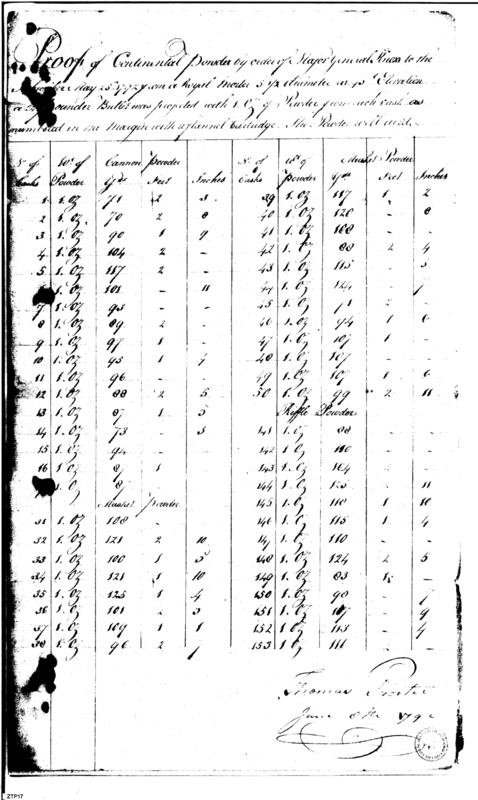 Proof of Continental Powder by order of Major General Knox to the
May 25 1792 from a Royal Morter 5 1/2 diameter 45° Elevation
a Pounder Bullet was projected with 1 Oz of Powder from each cask as
numbered in the Margin with a flannel Cartridge. The Powder well dried
No of Wt of Cannon Powder No of Wt of Musket Powder
Casks Powder Yds Feet Inches Casks Powder Yds Feet Inches
1 1. Oz 71 2 3 39 1. Oz 117 1 2
2 1. Oz 70 2 8 40 1. Oz 120 - 8
3 1. Oz 90 1 9 41 1. Oz 108 - -
4 1. Oz 104 2 - 42 1. Oz 88 2 4
5 1. Oz 117 2 - 43 1. Oz 115 - 5
1. Oz 101 - 11 1. Oz 124 -
7 1. Oz 93 - - 45 1. Oz 71 2 -
8 1. Oz 89 2 - 46 1. Oz 94 1 6
9 1. Oz 97 1 - 47 1. Oz 107 1 -
10 1. Oz 95 1 48 1. Oz 107 - -
11 1. Oz 96 - - 49 1. Oz 107 1 6
12 1. Oz 88 2 5 50 1. Oz 99 2 11
13 1. Oz 87 1 5 Riffle Powder
14 1. Oz 73 - 3 141 1. Oz 88 - -
15 1. Oz 94 - - 142 1. Oz 110 - -
16 1. Oz 87 1 - 143 1. Oz 104 2 -
1. Oz 144 1. Oz 125 - 11
Musket Powder 145 1. Oz 118 1 10
31 1. Oz 108 - - 146 1. Oz 115 1 4
32 1. Oz 121 2 10 1. Oz 110 - -
33 1. Oz 100 1 5 148 1. Oz 124 2 5
34 1. Oz 121 1 10 149 1. Oz 83 -
35 1. Oz 125 1 4 150 1. Oz 98 -
36 1. Oz 101 2 3 151 1. Oz 107 - 9
37 1. Oz 109 1 1 152 1. Oz 113 - 4
38 1. Oz 96 2 153 1. Oz 111 - -
Thomas
June 8th 1792
ZTP17